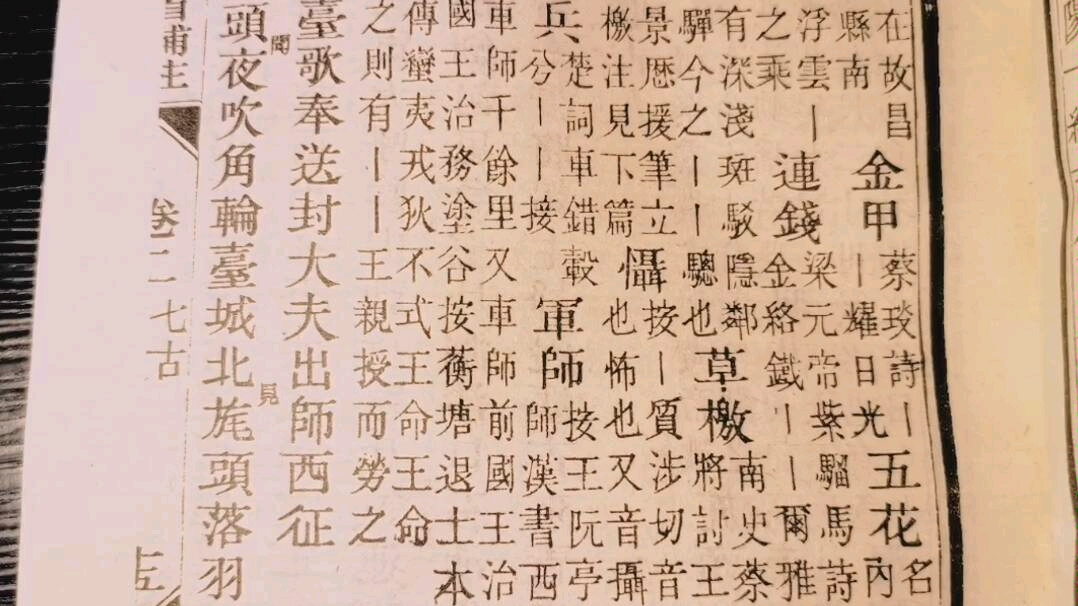 在故昌
縣南
金甲
蔡琰詩｜
｜耀日光
五花
名
內
浮雲｜
之乘
連錢
梁元帝紫騮馬詩
金絡鐵｜｜爾雅
有深淺斑駁隱鄰
驒今之｜｜驄也
草檄
南史蔡
將討王
景歷援筆立
檄注見下篇
懾
按｜質涉切音
也怖也又音攝
兵
楚詞車錯轂
兮｜｜接
軍師
按王阮亭
師漢書西
車師千餘里又車師前國王治
國王治務塗谷按蘅塘退士本
傳蠻夷戎狄不式王命王命
之則有｜｜王親授而勞之
臺歌奉送封大夫出師西征
頭夜吹角輪臺城北旄頭落羽
聞
見
卷二 七古